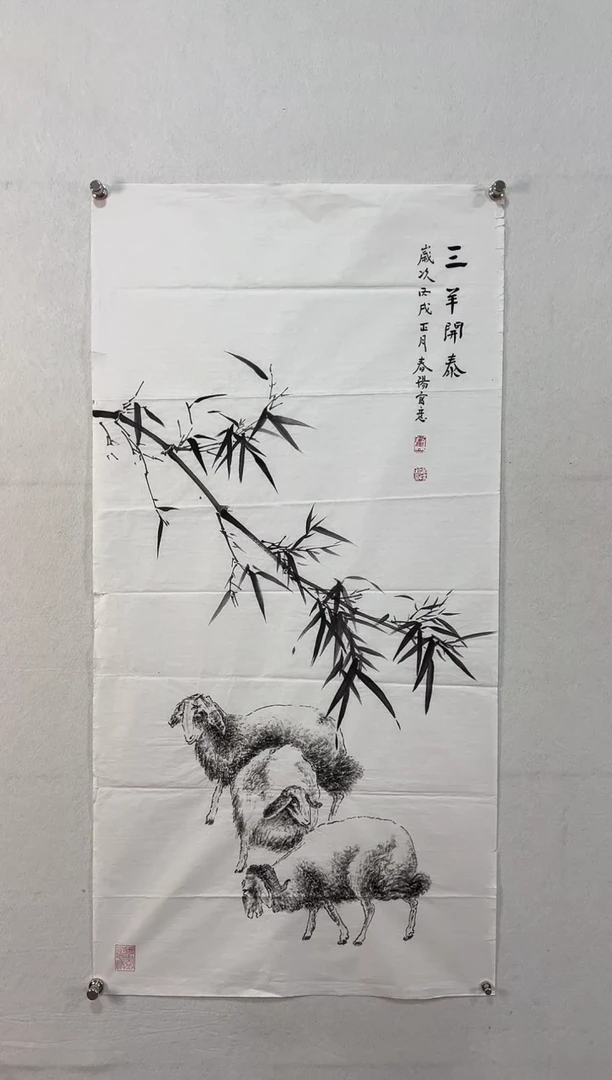 三羊開泰
歲次丙戌正月春陽寫意